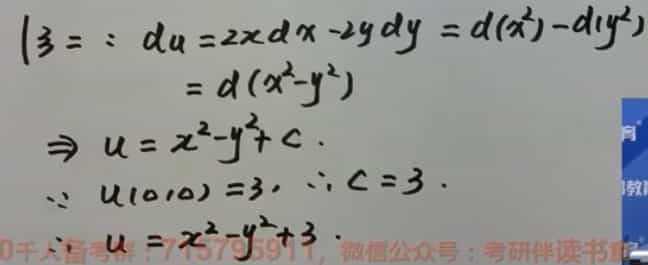 法二: du = 2xdx - 2ydy = d(x²) - d(y²)
= d(x² - y²)
⇒ u = x² - y² + C.
∵ u(0,0) = 3, ∴ C = 3.
∴ u = x² - y² + 3.
育
教
0千人督考群: 715795911, 微信公众号: 考研伴读书